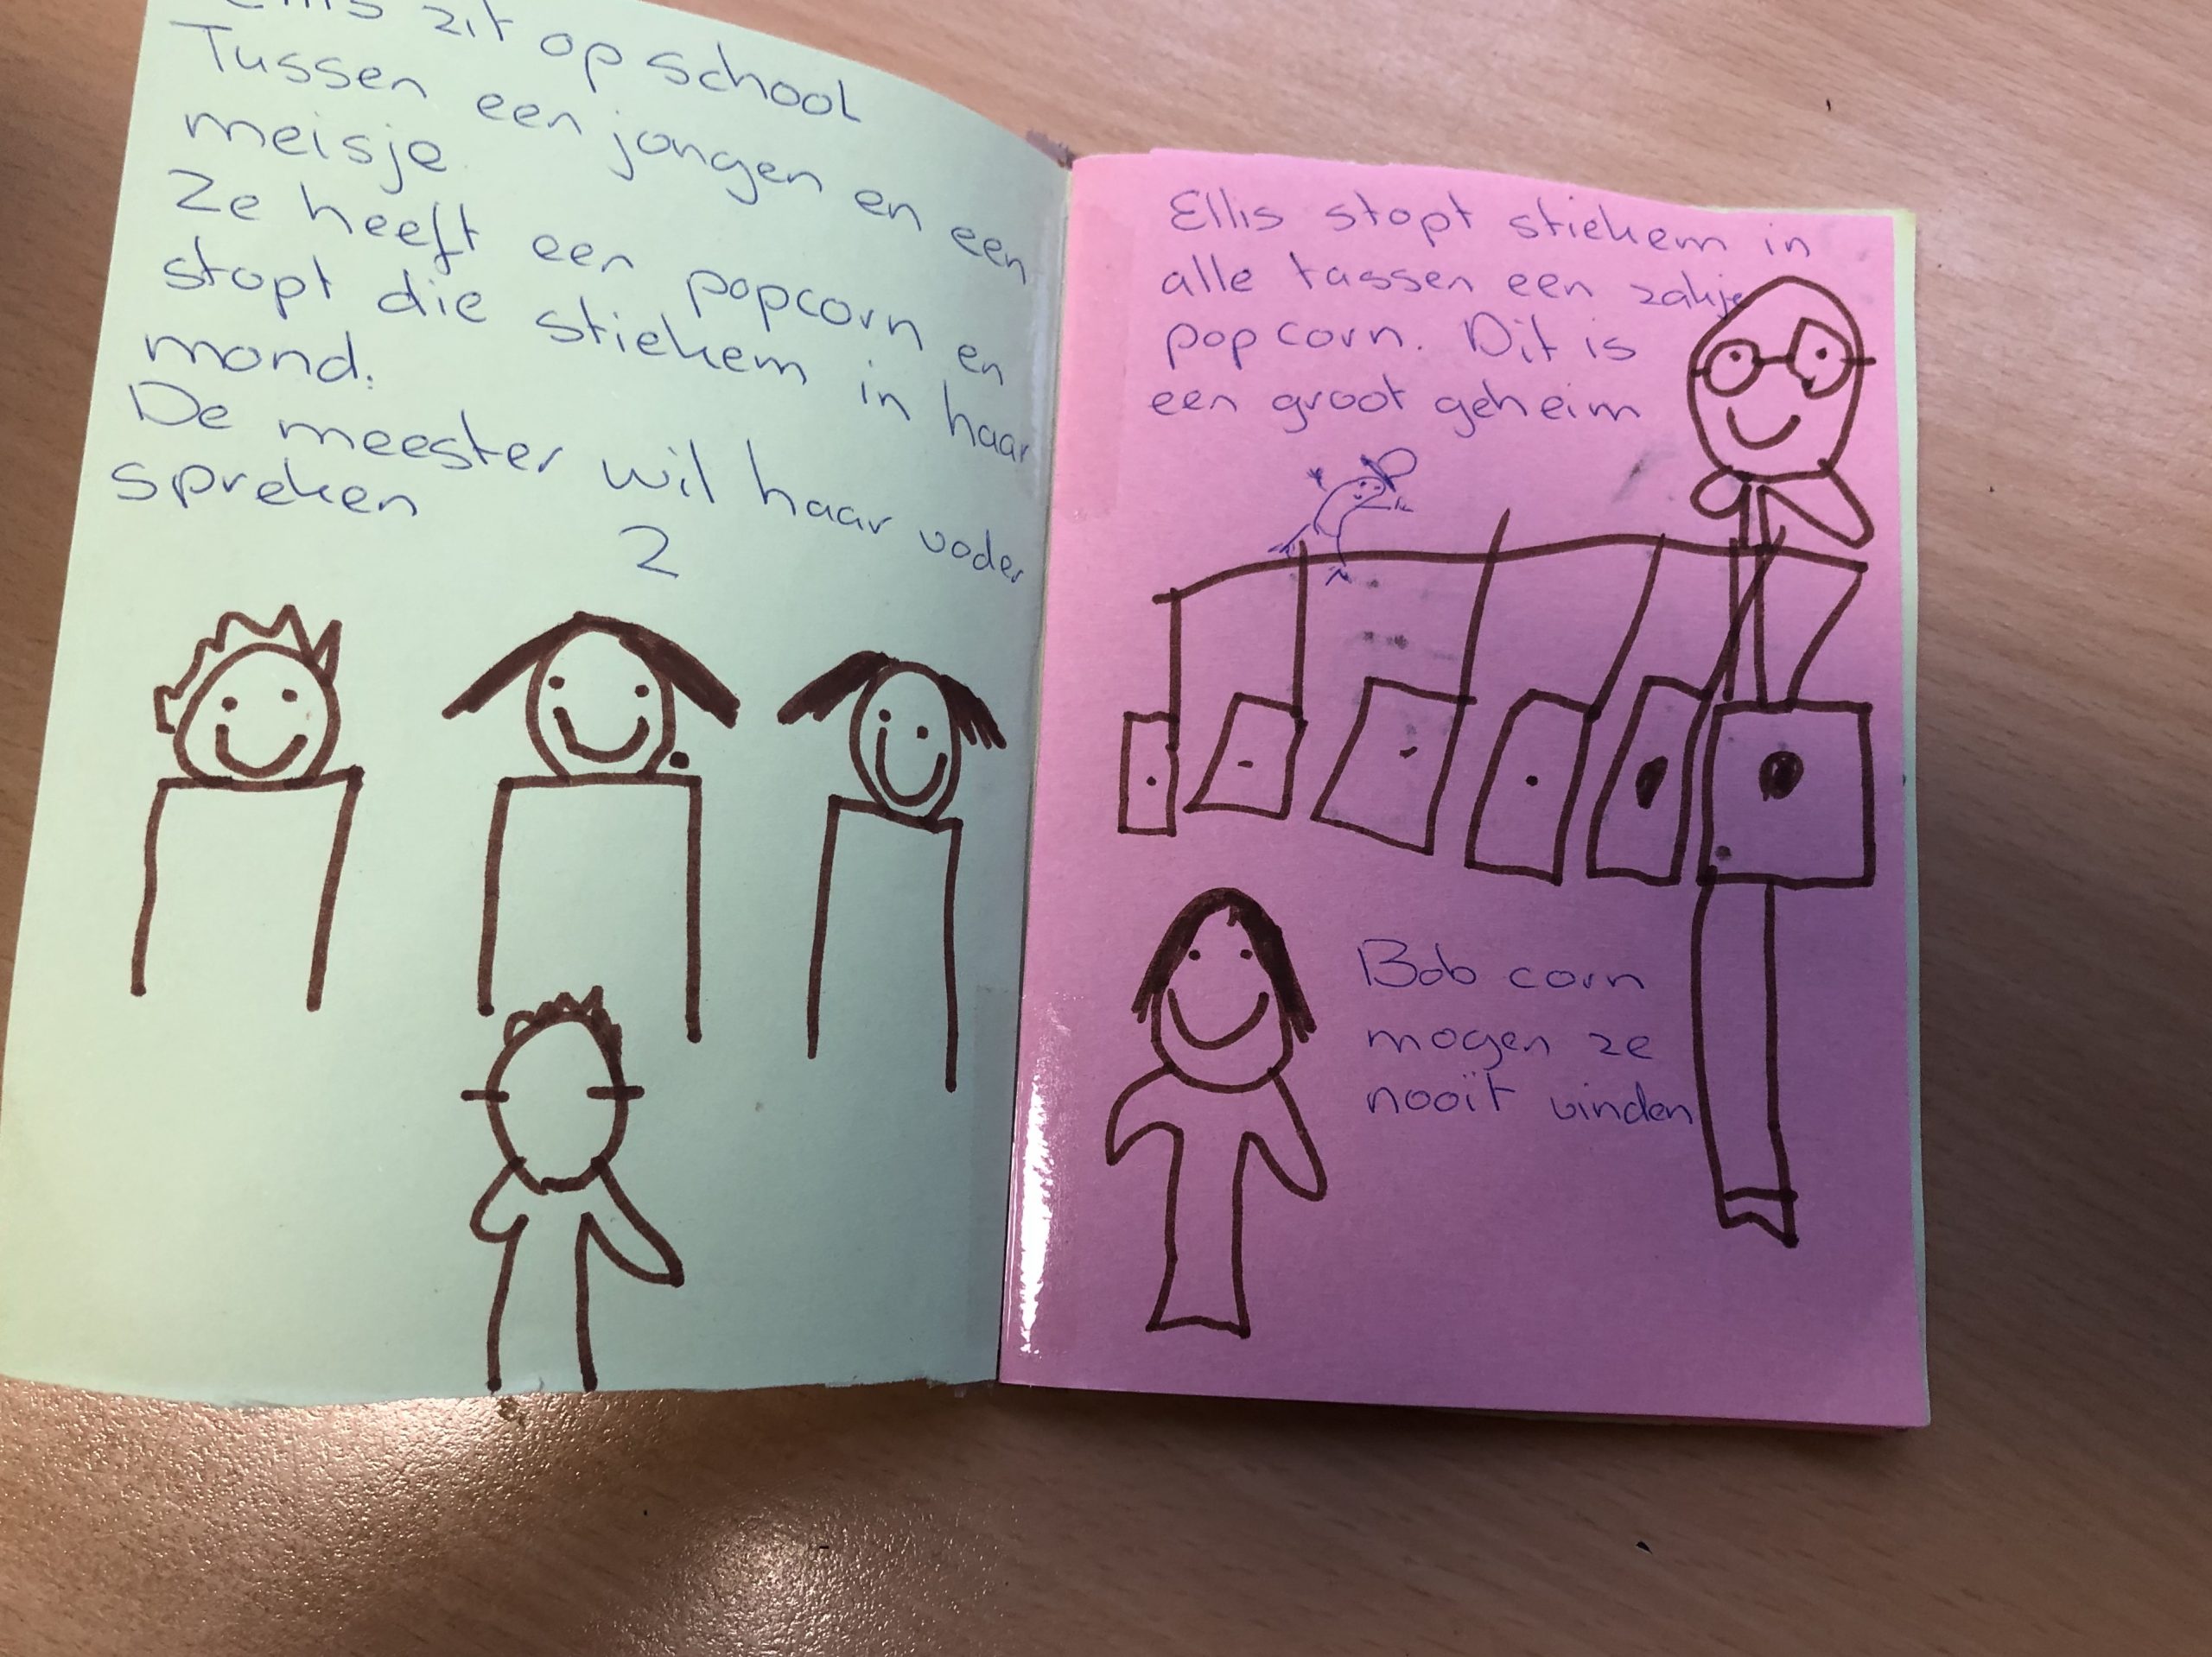 Ellis zit op school
Tussen een jongen en een
meisje
Ze heeft een popcorn en
stopt die stiekem in haar
mond.
De meester wil haar voder
spreken
2
Ellis stopt stiekem in
alle tassen een zakje
popcorn. Dit is
een groot geheim
Bob corn
mogen ze
nooït vinden